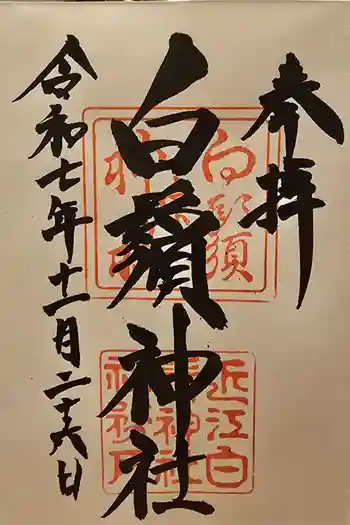 奉拝
白鬚神社
令和七年十一月二十六日
白鬚
近江白